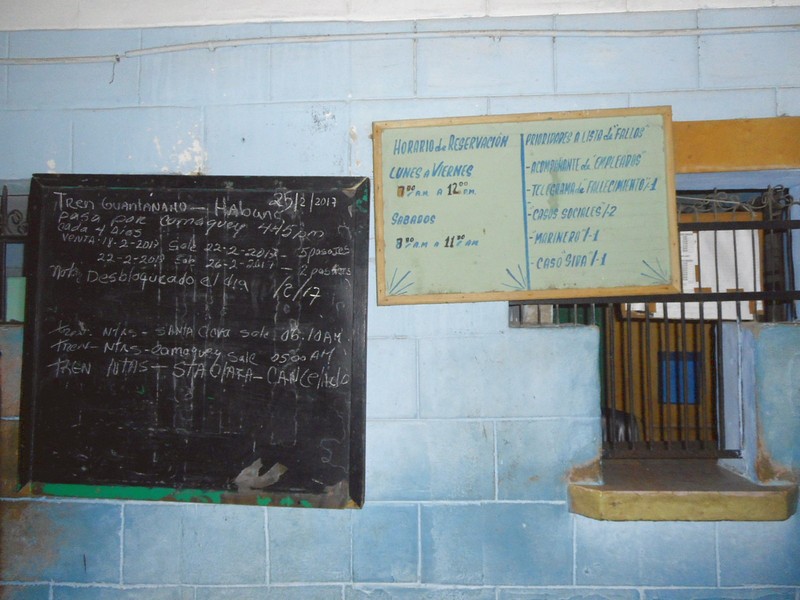 Tren Guantánamo - Habana 25/2/2017
pasa por Camaguey 4:45pm
Cada 4 dias
VENTA: 18-2-2017 Sale 22-2-2017 - 5 pasajes
22-2-2017 Sale 26-2-2017 - 2
Nota Desbloqueado el dia /2/17
tren- Ntas - SANTA Clara Sale 05:10 AM
Tren- Ntas- Camaguey Sale 05:00 AM
TREN Ntas - STA C/ATA - CANCelAdo
HORARIO de RESERVACIÓN
LUNES a VIERNES
8:00 A.M A 12:00 P.M.
SABADOS
8:00 A.M A 11:00 A.M
PRIORIDADES A LISTA de "FALLOS"
-ACOMPAÑANTE de "EMPLEADOS"
-TELEGRAMA de FALLECIMIENTO %-1
-"CASOS SOCIALES" %-2
-MARINERO %-1
-CASO "GIRA" %-1